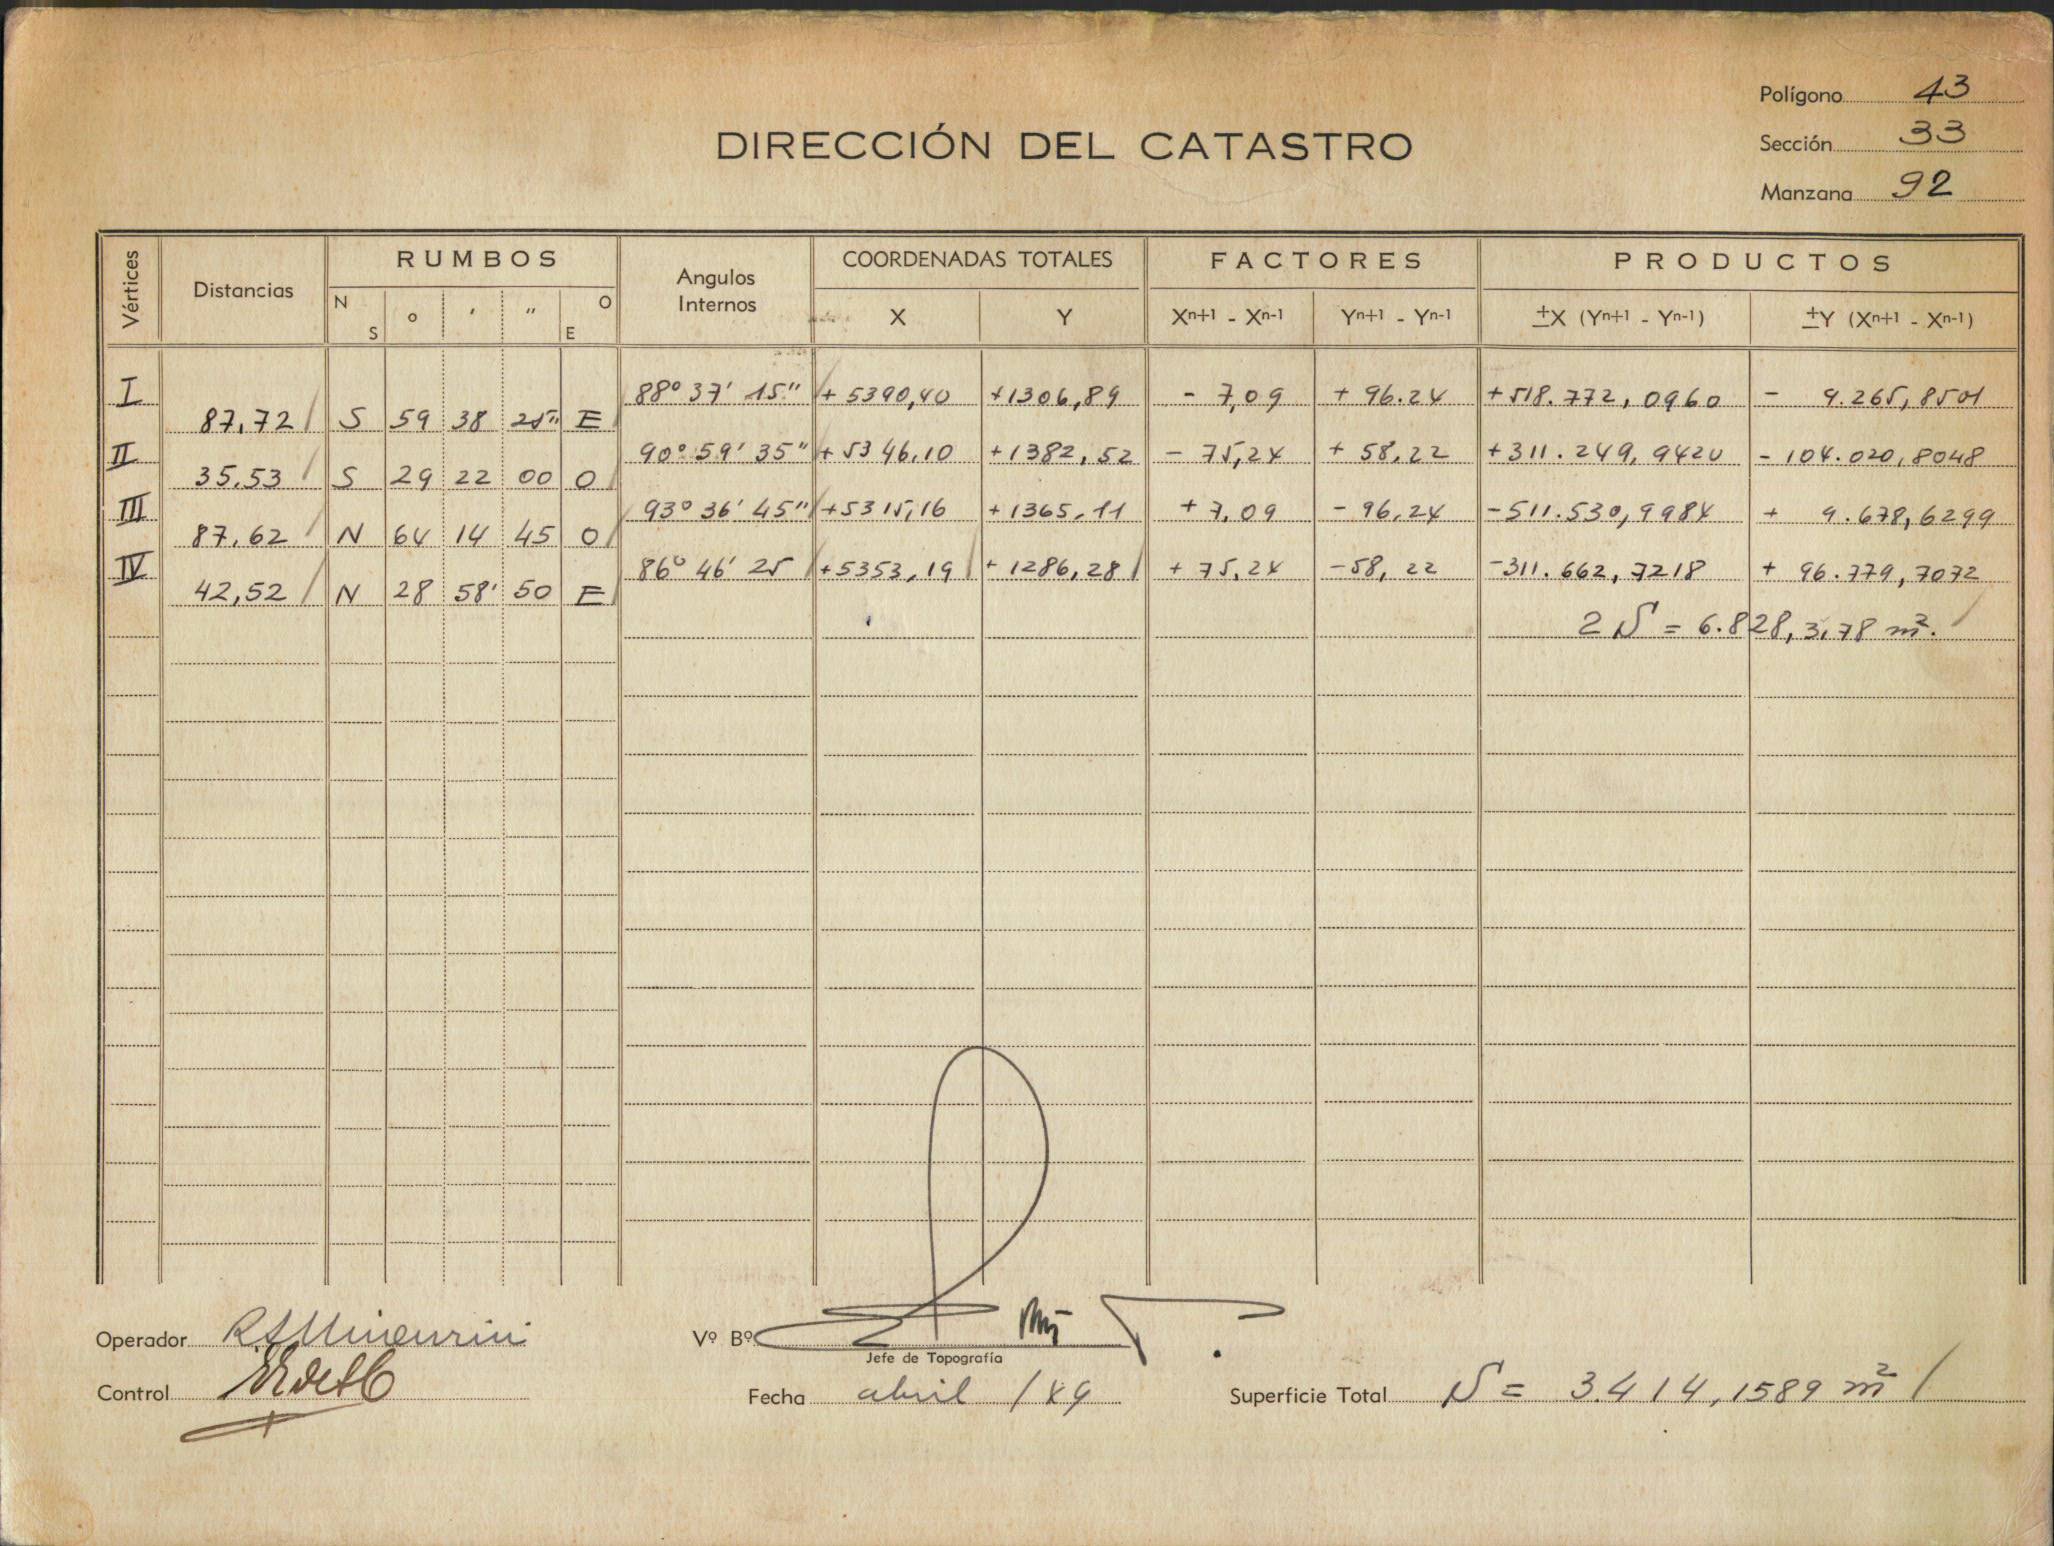 Polígono 43
DIRECCIÓN DEL CATASTRO
Sección 33
Manzana 92
Vértices Distancias RUMBOS Angulos Internos COORDENADAS TOTALES FACTORES PRODUCTOS
N S ° ' " O E X Y Xn+1 - Xn-1 Yn+1 - Yn-1 ±X (Yn+1 - Yn-1) ±Y (Xn+1 - Xn-1)
I 88° 37' 15" + 5390,40 +1306,89 - 7,09 + 96.24 +518.772,0960 - 9.265,8501
87,72 S 59 38 25" E
II 90° 59' 35" + 5346,10 +1382,52 - 75,24 + 58,22 +311.249,9420 - 104.020,8048
35,53 S 29 22 00 O
III 93° 36' 45" +5315,16 +1365,11 + 7,09 - 96,24 -511.530,9984 + 9.678,6299
87,62 N 64 14 45 O
IV 86° 46' 25 +5353,19 + 1286,28 + 75,24 -58,22 -311.662,7218 + 96.779,7072
42,52 N 28 58' 50 E
2 S = 6.828,3178 m².
Operador
Vº Bº
Jefe de Topografía
Control
Fecha abril /49
Superficie Total S = 3.414,1589 m²